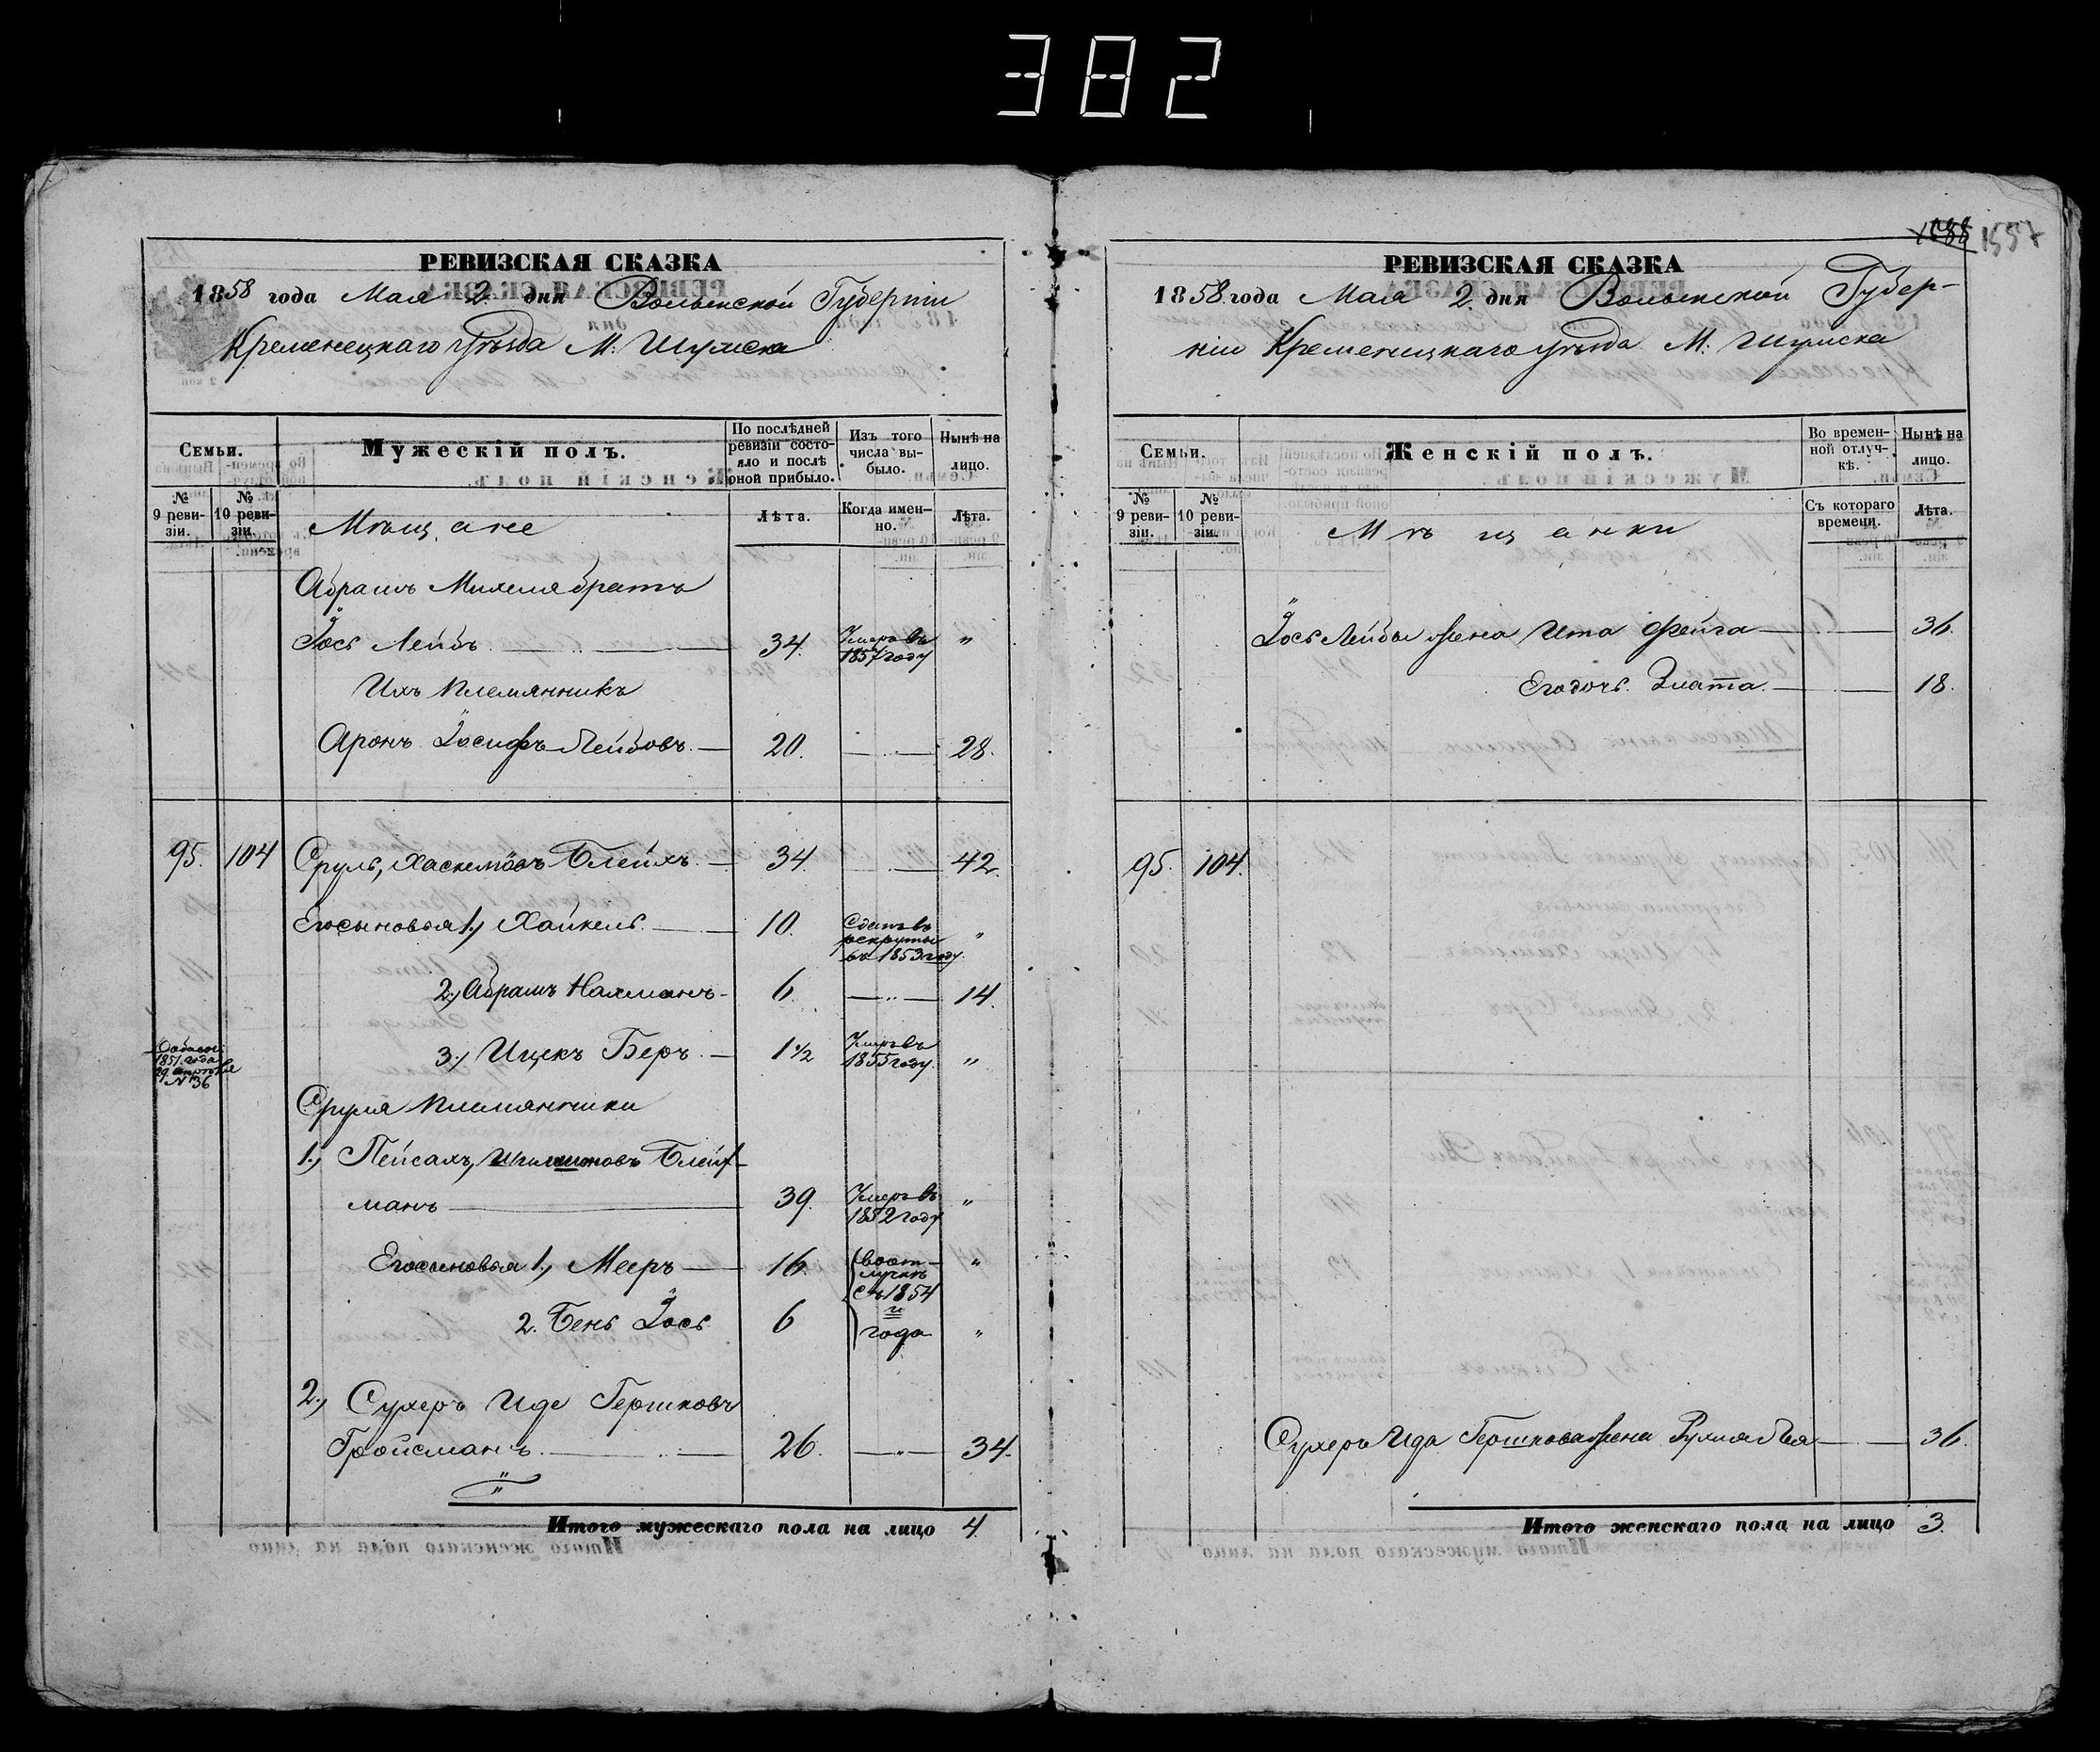 382
РЕВИЗСКАЯ СКАЗКА
1858 года Мая 2 дня Волынской Губерніи
Кременецкаго уѣзда М: Шумска
Семьи.
Мужескій полъ.
По послѣдней ревизіи состояло и послѣ оной прибыло.
Изъ того числа выбыло.
Нынѣ на лицо.
№ 9 ревизіи.
№ 10 ревизіи.
Мѣщане
Лѣта.
Когда именно.
Лѣта.
Абрамъ Михеля братъ
Іось Лейбъ 34. Умеръ въ 1857 году "
Ихъ племянникъ
Аронъ Іосифъ Лейбовъ 20. 28.
95. 104 Сруль, Хаскелювъ Блейхъ 34. 42.
Его сыновья 1., Хайкель 10. Сданъ въ рекруты въ 1853 году "
2., Абрамъ Нахманъ 6. 14.
3., Ицекъ Беръ 1 1/2 Умеръ въ 1855 году "
1851. года
№ 36
Сруля племянники
1., Пейсахъ, Блейх-
манъ 39. Умеръ въ 1852 году "
Его сыновья 1., Мееръ 16. въ отлучкѣ съ 1854 "
2. Бень Іось 6 года "
2., Сухеръ Иде Гершковъ
Гройсманъ 26. 34.
Итого мужескаго пола на лицо 4.
1557
РЕВИЗСКАЯ СКАЗКА
1858 года Мая 2 дня Волынской Губер-
ніи Кременецкаго уѣзда М. Шумска
Семьи.
Женскій полъ.
Во временной отлучкѣ.
Нынѣ на лицо.
№ 9 ревизіи.
№ 10 ревизіи.
Мѣщанки
Съ котораго времени.
Лѣта.
Іось Лейбы жена Ита Фейга 36.
Его дочь Злата 18.
95. 104.
Сухеръ Ида Гершкова жена Рухля Лея 36.
Итого женскаго пола на лицо 3.